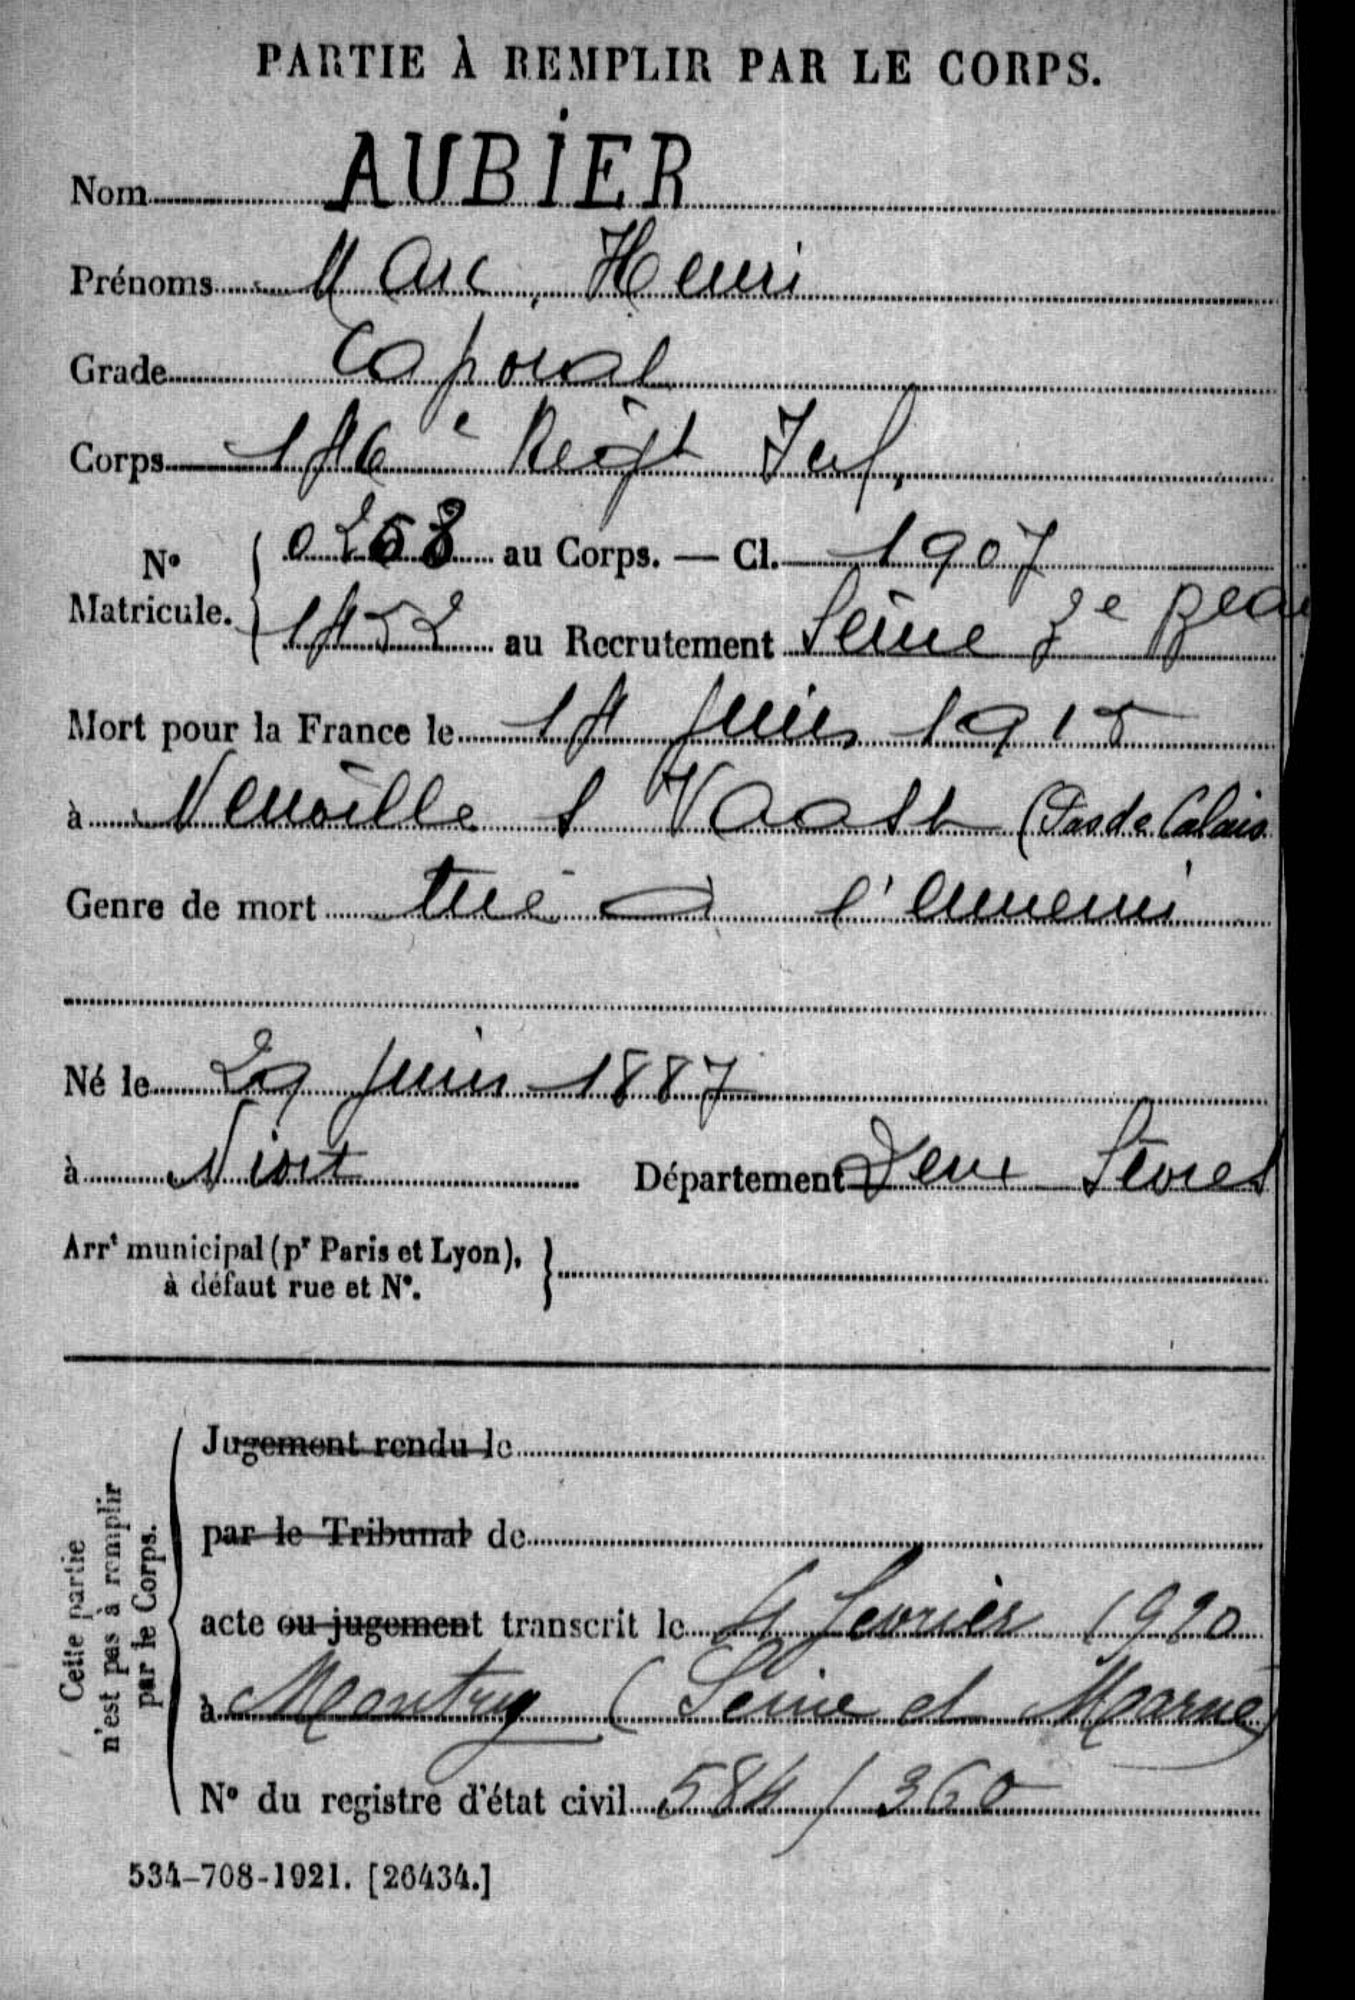 PARTIE À REMPLIR PAR LE CORPS.
Nom AUBIER
Prénoms Marc, Henri
Grade Caporal
Corps 146e Regt Inf.
No Matricule. 0263 au Corps. — Cl. 1907
1452 au Recrutement Seine 3e
Mort pour la France le 14 Juin 1915
à Neuville S Vaast (Pas de Calais
Genre de mort tué à l'ennemi
Né le 29 Juin 1887
à Niort Département Deux Sèvres
Arrt municipal (pr Paris et Lyon),
à défaut rue et No.
Cette partie
n'est pas à remplir
par le Corps.
Jugement rendu le
par le Tribunal de
acte ou jugement transcrit le 4 fevrier 1920
à Montry (Seine et Marne)
No du registre d'état civil 584/360
534-708-1921. [26434.]